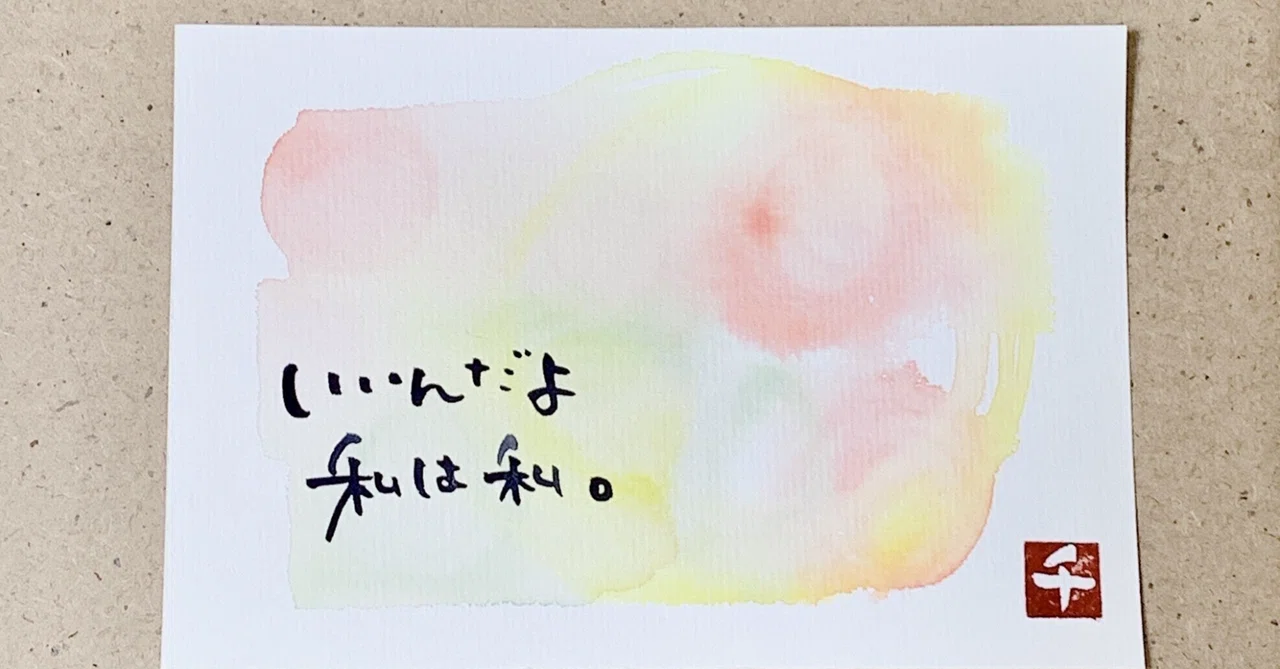 いいんだよ
私は私。
千